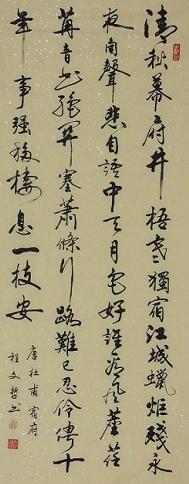 清秋幕府井梧寒獨宿江城蠟炬殘永
夜角聲悲自語中天月色好誰看風塵荏
苒音书絕關塞蕭條行路難已忍伶俜十
年事强移棲息一枝安
唐杜甫宿府
程文哲书